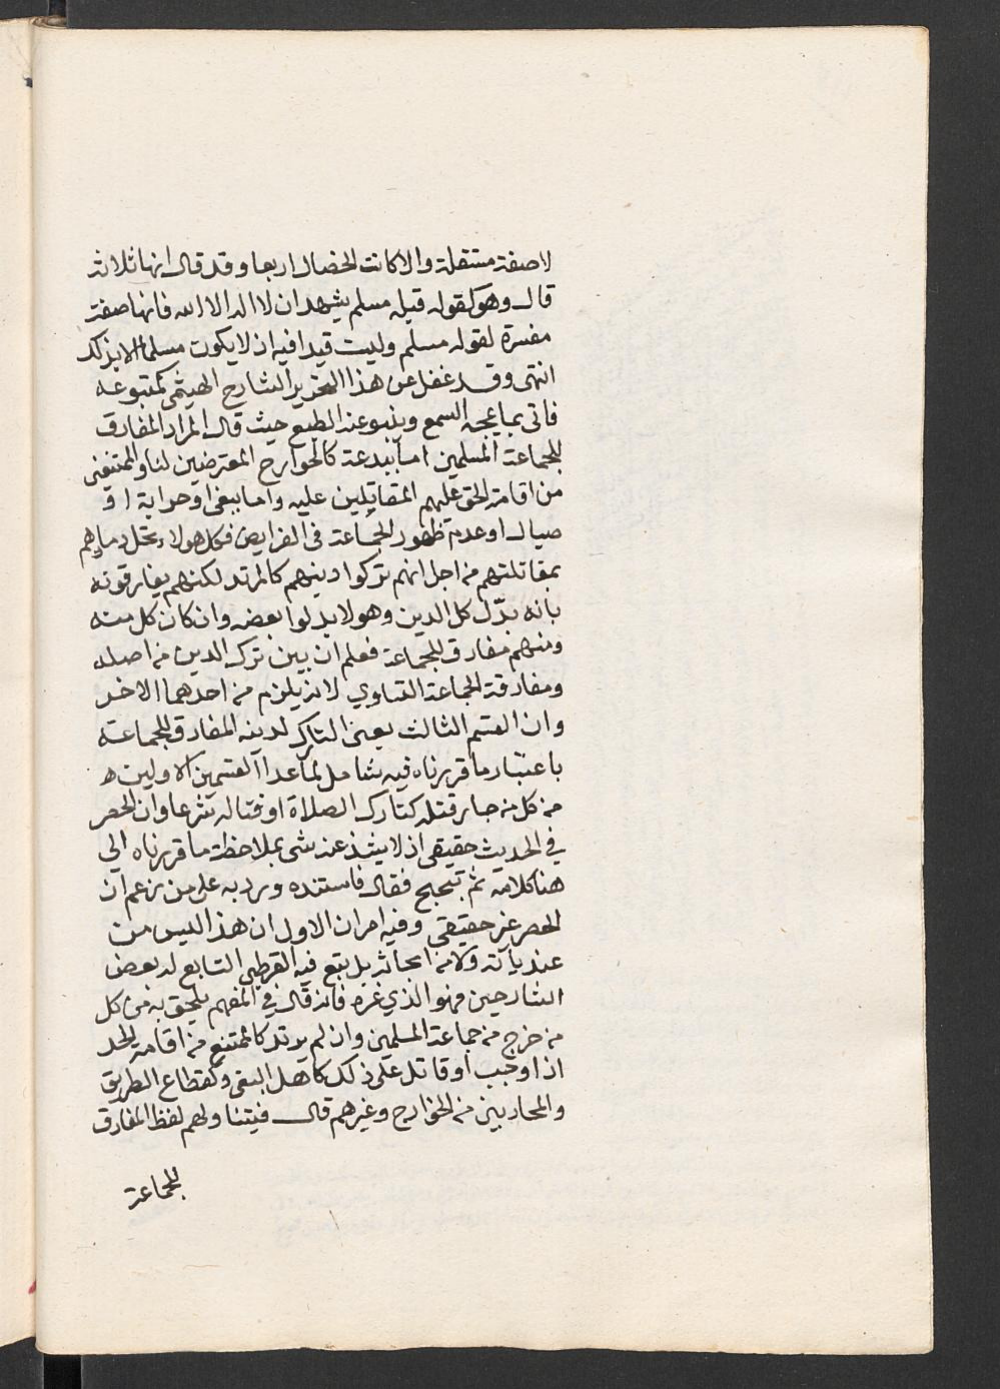 لا صفة مستقلة والا كانت الخصال اربعا وقد قال انها ثلاثة
قال وهو كقوله قبله مسلم يشهد ان لا اله الا الله فانها صفة
مفسرة لقوله مسلم وليست قيدا فيه اذ لا يكون مسلما الا بذلك
انتهى وقد غفل عن هذا التحرير الشارح الهيثمي كمتبوعه
فاتى بما يمجه السمع وينبو عنه الطبع حيث قال المراد المفارق
للجماعة المسلمين اما ببدعة كالخوارج المعترضين لنا والممتنعين
من اقامة الحق عليهم المقاتلين عليه واما ببغى او حرابة او
صيال او عدم ظهور الجماعة فى الفرايض فكل هولاء تحل دماؤهم
بمقاتلتهم من اجل انهم تركوا دينهم كالمرتد لكنهم يفارقونه
بانه بدّل كل الدين وهولا بدلوا بعضه وان كان كل منه
ومنهم مفارق للجماعة فعلم ان بين ترك الدين من اصله
ومفارقة الجماعة التساوي لانه يلزم من احدهما الاخر
وان القسم الثالث يعنى التارك لدينه المفارق للجماعة
باعتبار ما قررناه فيه شامل لما عدا القسمين الاولين
من كل من جاز قتله كتارك الصلاة او قتاله شرعا وان الحصر
في الحديث حقيقى اذ لا يشذ عنه شى بملاحظة ما قررناه الي
هنا كلامه ثم تبجح فقال فاستفده ورد به على من زعم ان
الحصر غير حقيقي وفيه امران الاول ان هذا ليس من
عندياته ولا من ابحاثه بل تبع فيه القرطبي التابع له بعض
الشارحين فهو الذي غره فانه قال في المفهم يلحق به من كل
من خرج من جماعة المسلمين وان لم يرتد كالممتنع من اقامة الحد
اذا وجب او قاتل على ذلك كاهل البغى وكقطاع الطريق
والمحاربين من الخوارج وغيرهم قال فيتناولهم لفظ المفارق
للجماعة